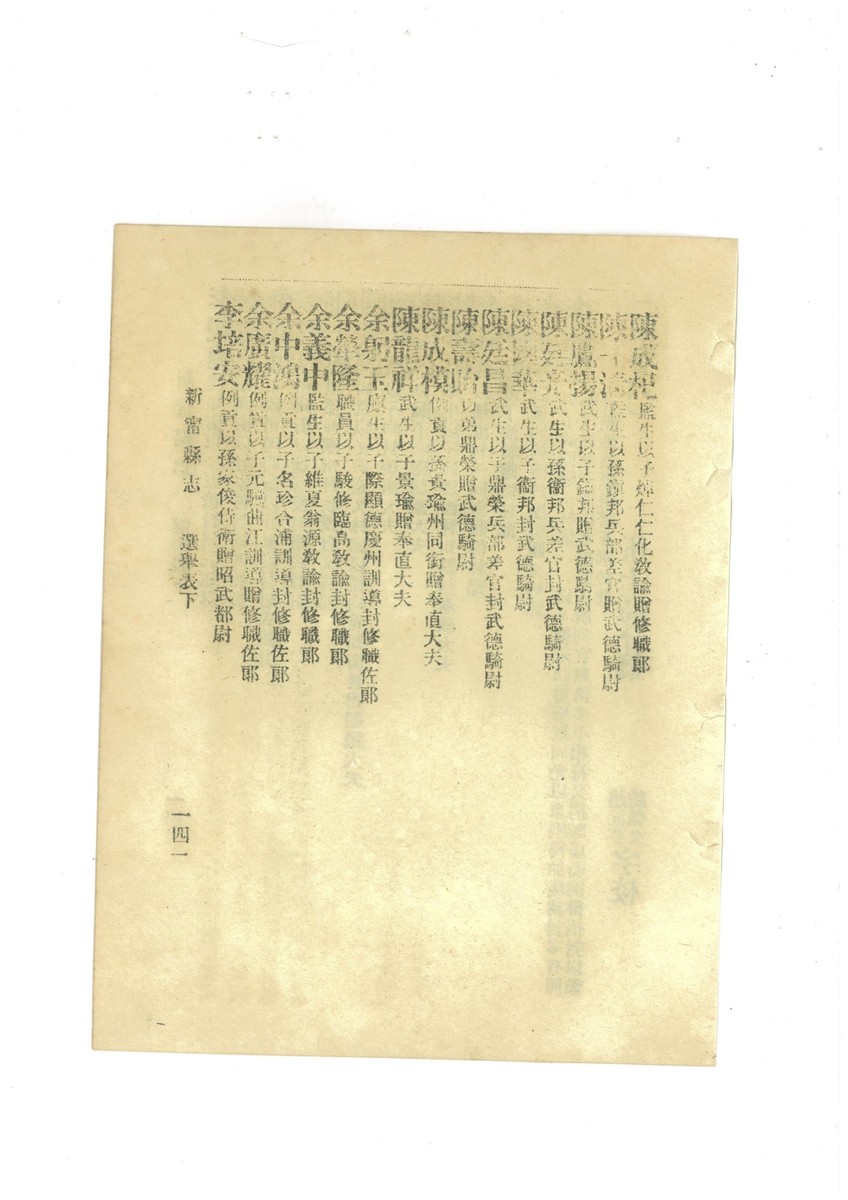 陳成杞監生以子焯仁仁化敎諭贈修職郞
陳 監生以孫衞邦兵部差官贈武德騎尉
陳鷹揚武生以子鎮邦贈武德騎尉
陳廷 武生以孫衞邦兵差官封武德騎尉
陳 華武生以子衞邦封武德騎尉
陳廷昌武生以子鼎榮兵部差官封武德騎尉
陳壽 以弟鼎榮贈武德騎尉
陳成模例貢以孫景瑜州同銜贈奉直大夫
陳龍祥武生以子景瑜贈奉直大夫
余躬玉廩生以子際顯德慶州訓導封修職佐郞
余舉隆職員以子駿修臨高敎諭封修職郞
余義中監生以子維夏翁源敎諭封修職郞
余中鴻例貢以子名珍合浦訓導封修職佐郞
余廣耀例貢以子元驄曲江訓導贈修職佐郞
李培安例貢以孫家俊侍衛贈昭武都尉
新甯縣志 選舉表下
一四一